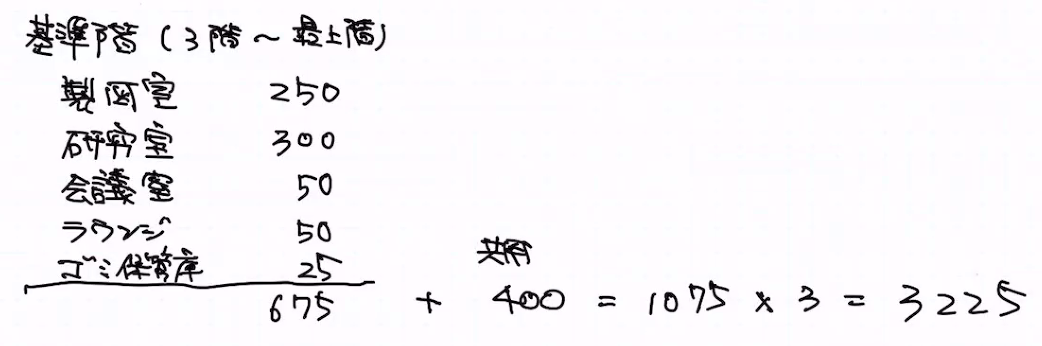 基準階（3階～最上階）
製図室 250
研究室 300
会議室 50
ラウンジ 50
ゴミ保管庫 25
共用
675 + 400 = 1075 × 3 = 3225